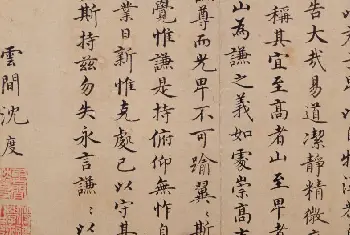 告大哉易道潔靜精微
稱其宜至高者山至卑者
山為謙之義如崇高
尊而光卑不可踰翼〻斯
覺惟謙是持俯仰無怍自
業日新惟克處已以守其
斯持茲勿失永言謙〻以
雲間沈度